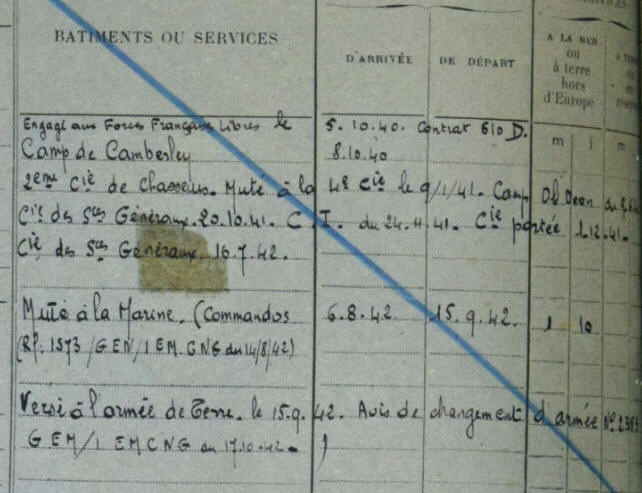 BATIMENTS OU SERVICES
D'ARRIVÉE
DE DÉPART
A LA MER
ou
à terre
hors
d'Europe
m j m
Engagé aux Forces Françaises Libres le 5.10.40. Contrat 610 D.
Camp de Camberley 8.10.40
2eme Cie de Chasseurs. Muté à la 4e Cie le 9/1/41. Camp Old Dean du
Cie des Sces Généraux. 20.10.41. C.I. du 24.11.41. Cie portée 1.12.41.
Cie des Sces Généraux. 16.7.42.
Muté à la Marine. (Commandos 6.8.42 15.9.42. 1 10
(Rf. 1573/GEN/1 EM.CNG du 14/8/42)
Versé à l'armée de Terre. le 15.9.42. Avis de changement d'armée No
GEM/1 EMCNG du 17.10.42.)